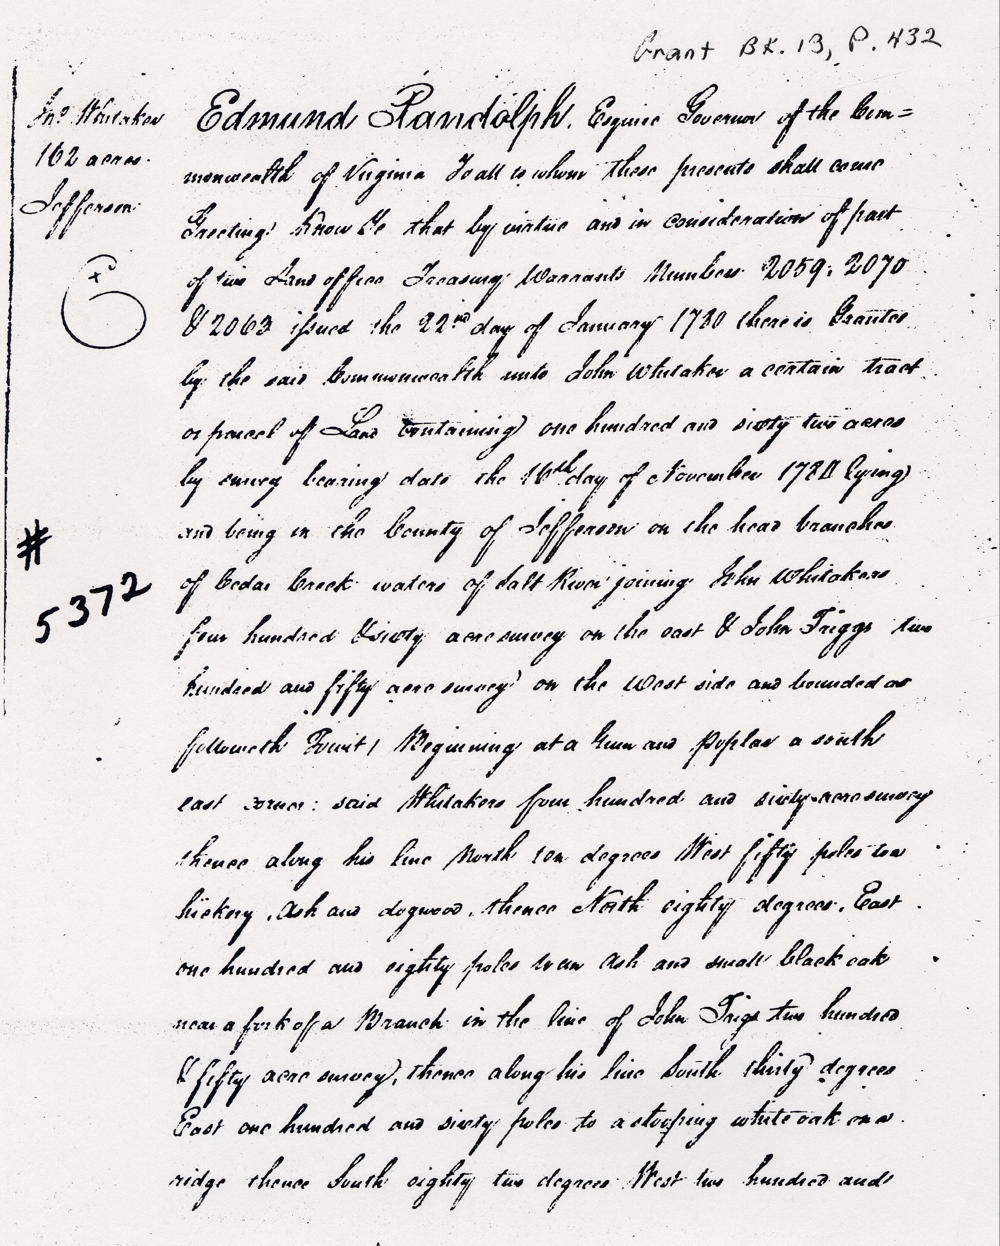 Grant BK. 13, P. 432
Jno Whitaker
162 acres.
Jefferson
#
5372
Edmund Randolph. Esquire Governor of the Com=
monwealth of Virginia To all to whom these presents shall come
Greeting! Know Ye that by virtue and in consideration of part
of two Land office Treasury Warrants Numbers 2059. 2070
& 2063 issued the 22nd day of January 1780 there is Granted
by the said Commonwealth unto John Whitaker a certain tract
or parcel of Land Containing one hundred and sixty two acres
by survey bearing date the 16th day of November 178 lying
and being in the County of Jefferson on the head branches
of Cedar Creek waters of Salt River joining John Whitakers
four hundred & sixty acre survey on the east & John Triggs two
hundred and fifty acre survey on the West side and bounded as
followeth Towit, Beginning at a Gum and Poplar a south
east corner: said Whitakers four hundred and sixty acre survey
thence along his line North ten degrees West fifty poles to a
hickory, Ash and dogwood, thence North eighty degrees, East
one hundred and eighty poles to an Ash and small black oak
near a fork of a Branch in the line of John Trigs two hundred
& fifty acre survey, thence along his line South thirty degrees
East one hundred and sixty poles to a stooping white oak on a
ridge thence South eighty two degrees West two hundred and